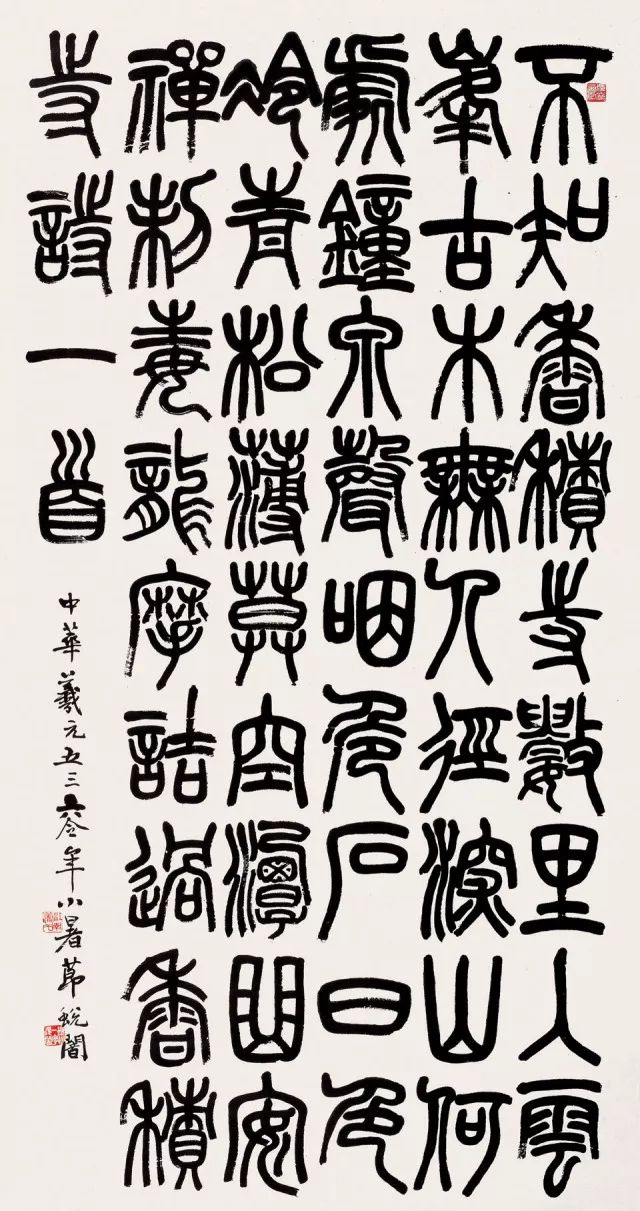 不知香積寺數里入雲
峯古木無人徑深山何
處鐘泉聲咽危石日色
冷青松薄莫空潭曲安
禪制毒龍摩詰過香積
寺詩一首
中華羲元五三年小暑節蛻闇